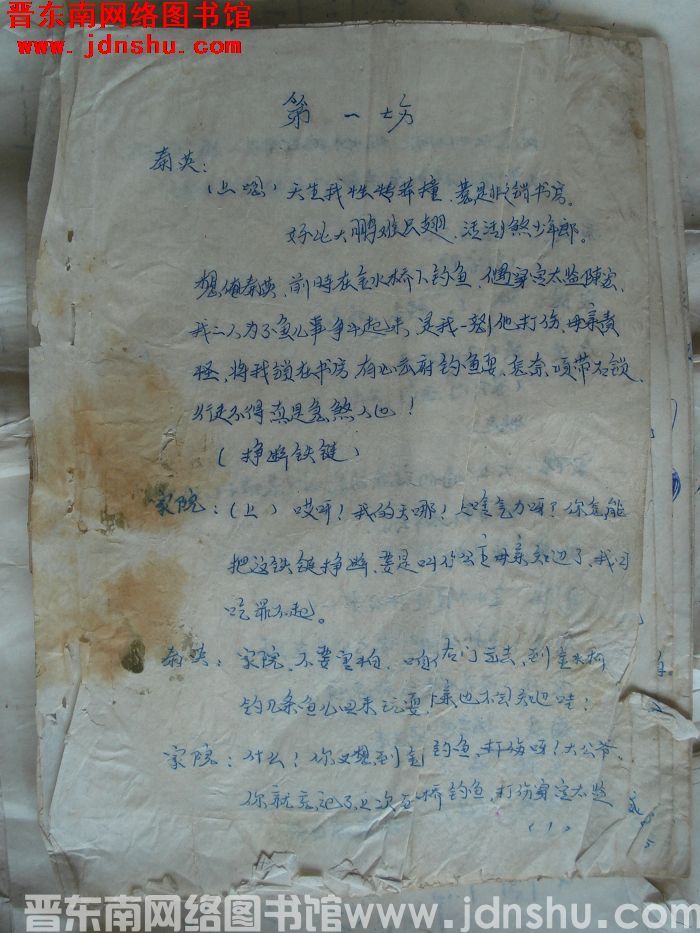 晋东南网络图书馆
www.jdnshu.com
第一场
秦英：
（上唱）天生我性情莽撞，惹是非锁书房。
好比大鹏难只翅，活活煞少年郎。
想俺秦英，前时在金水桥下钓鱼，偶遇穿宫太监陈宏，
我二人为了鱼儿事争斗起来，是我一怒，他打伤，母亲责
怪，将我锁在书房，有心去府钓鱼耍，无奈项带石锁，
行走不得真是急煞人也！
（挣断铁链）
家院：（上）哎呀！我的天哪！啥气力呀？你怎能
把这铁链挣断，要是叫你公主母亲知道了，我可
吃罪不起。
秦英：家院，不要害怕，咱们后门出去，到金水桥
钓几条鱼儿回来玩耍，母亲也不可知道哇！
家院：什么！你又想到金钓鱼，打伤呀！大公爷，
你就忘记了上次在桥钓鱼，打伤穿宫太监
（1）
晋东南网络图书馆www.jdnshu.com